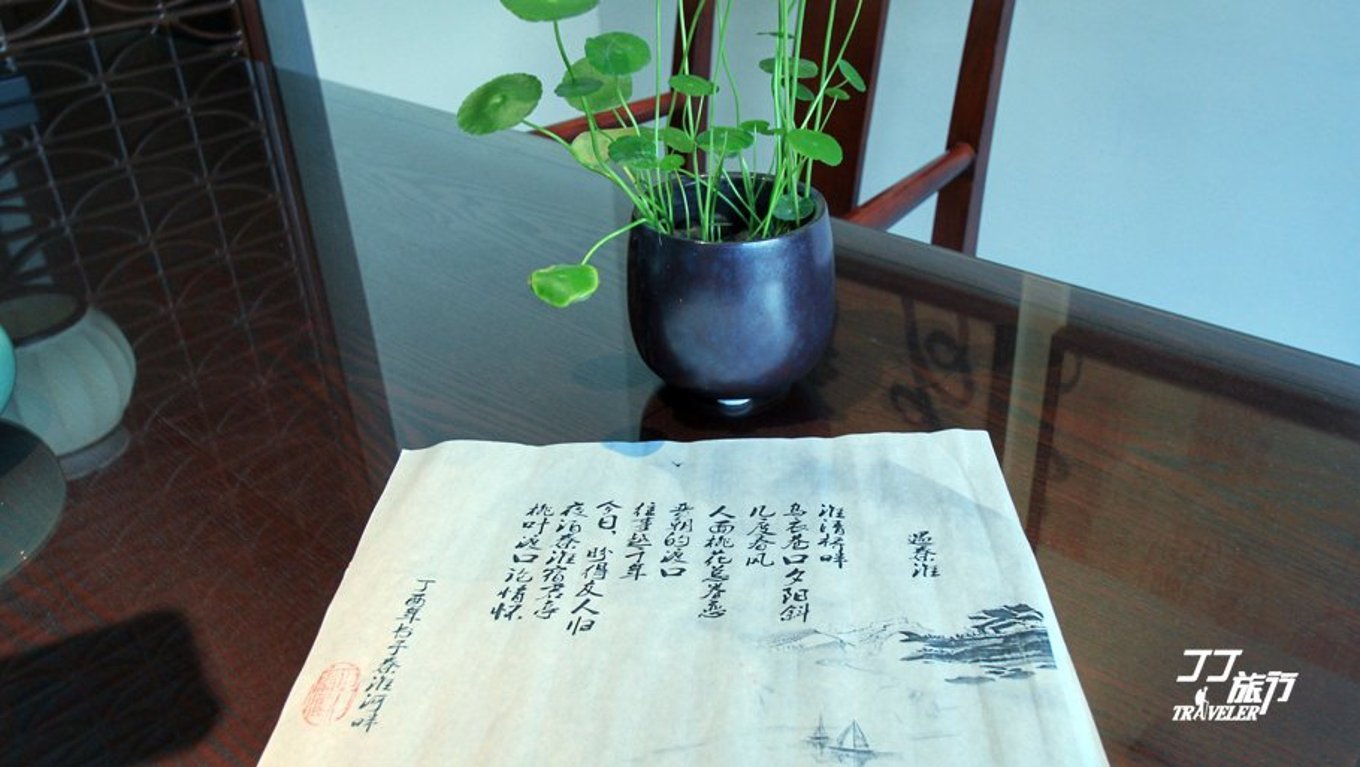 秦淮
淮清桥畔
乌衣巷口夕阳斜
几度春风
人面桃花总眷恋
六朝的渡口
往事越千年
今日 盼得友人归
夜泊秦淮宿君亭
桃叶渡口论情怀
丁酉年书于秦淮河畔
丁丁旅行
TRAVELER